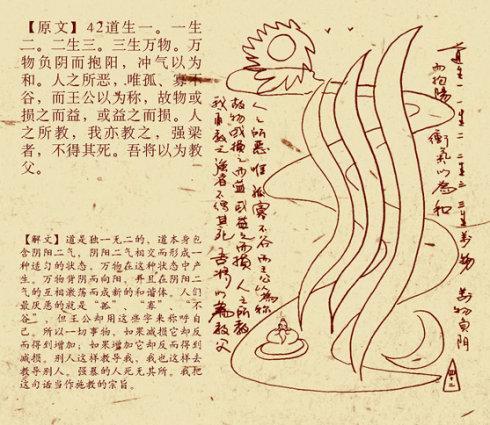 【原文】42道生一。一生
二。二生三。三生万物。万
物负阴而抱阳，冲气以为
和。人之所恶，唯孤、寡不
谷，而王公以为称，故物或
损之而益，或益之而损。人
之所教，我亦教之，强梁
者，不得其死。吾将以为教
父。
【解文】道是独一无二的，道本身包
含阴阳二气，阴阳二气相交而形成一
种适匀的状态，万物在这种状态中产
生。万物背阴而向阳，并且在阴阳二
气的互相激荡而成新的和谐体。人们
最厌恶的就是“孤”、“寡”、“不
谷”，但王公却用这些字来称呼自
己。所以一切事物，如果减损它却反
而得到增加；如果增加它却反而得到
减损。别人这样教导我，我也这样去
教导别人。强暴的人死无其所。我把
这句话当作施教的宗旨。
道生一一生二二生三三生万物万物负阴
而抱阳衝气以为和
人之所恶唯孤寡不谷而王公以为称
故物或损之而益或益之而损人之所教
我亦教之强者不得其死吾将以为教父
四十二